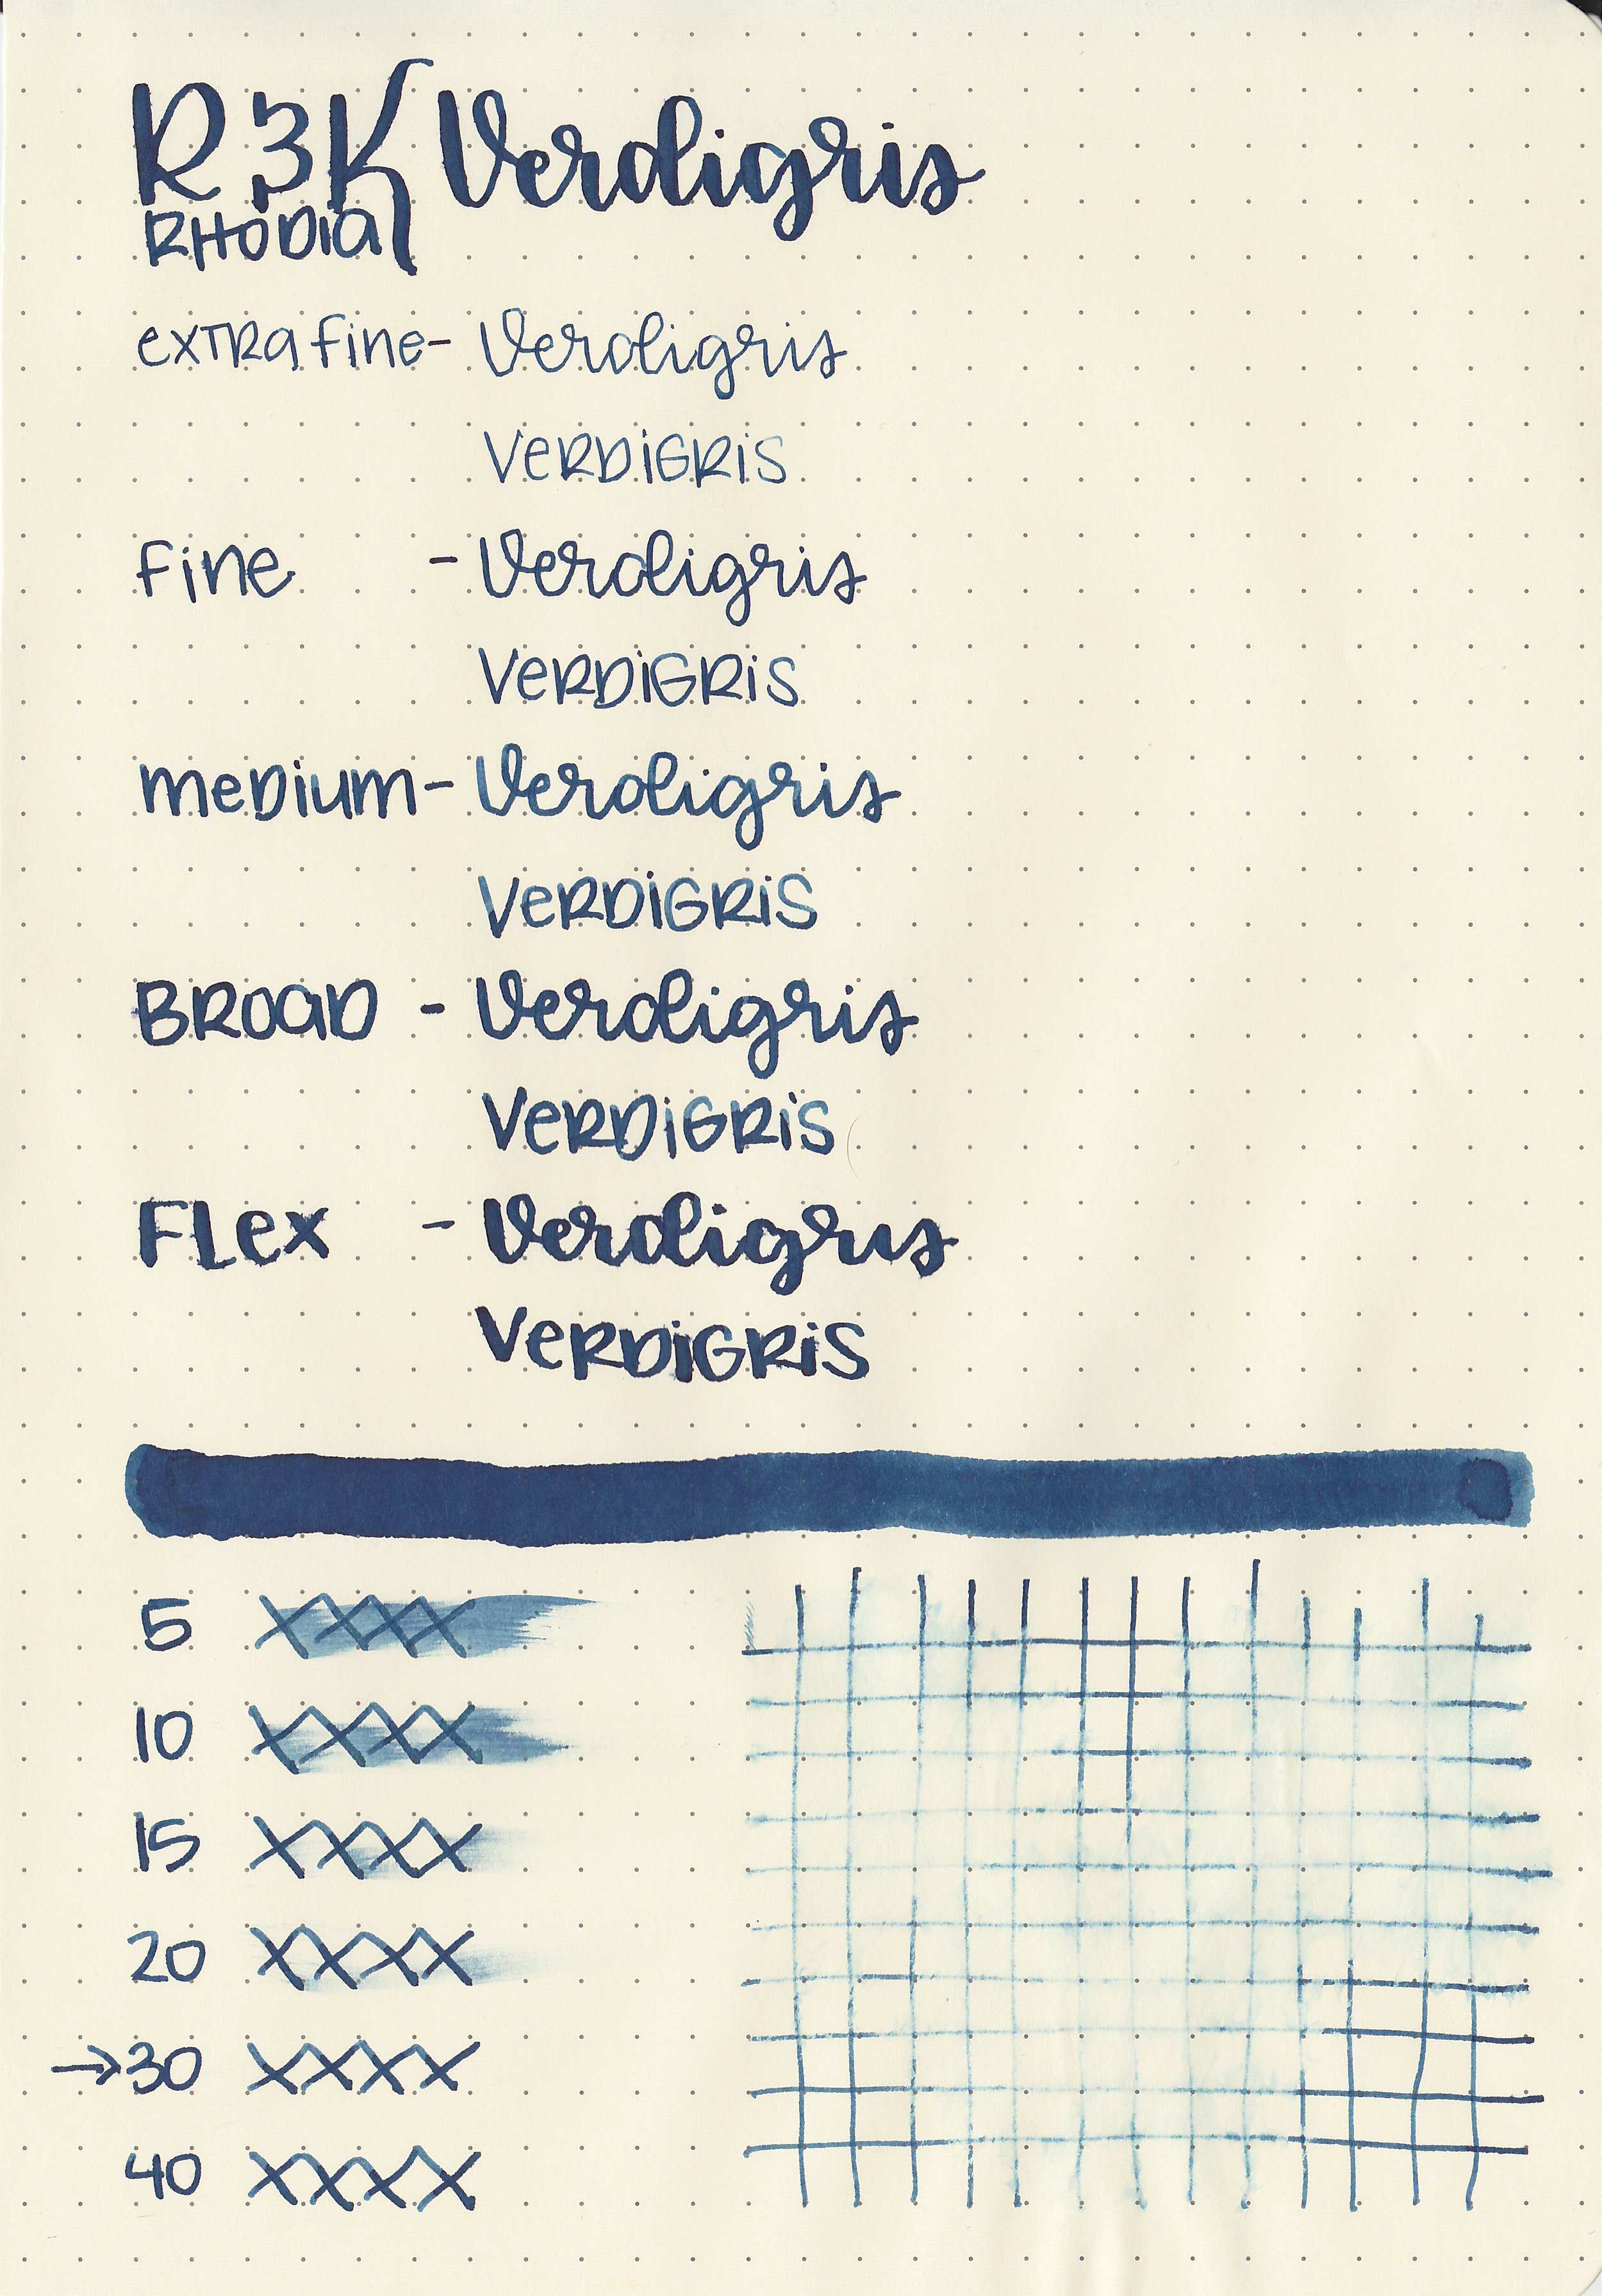 R3K Verdigris
RHODIA
EXTRA FINE - Verdigris
VERDIGRIS
FINE - Verdigris
VERDIGRIS
MEDIUM - Verdigris
VERDIGRIS
BROAD - Verdigris
VERDIGRIS
FLEX - Verdigris
VERDIGRIS
5 XXXX
10 XXXX
15 XXXX
20 XXXX
→30 XXXX
40 XXXX